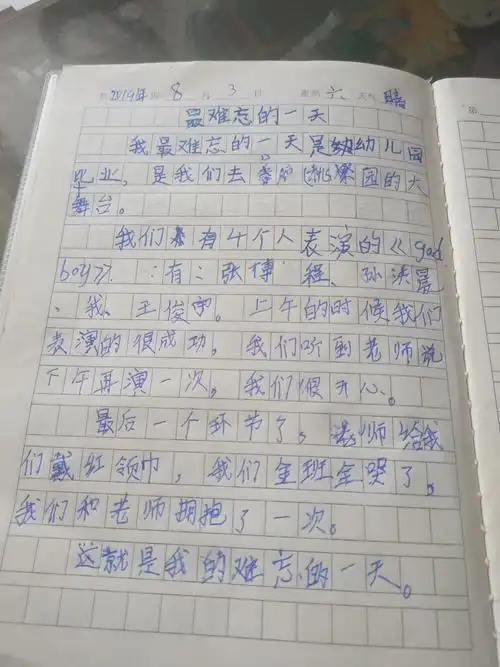 2019年 8月 3日 星期六 天气 晴
最难忘的一天
我最难忘的一天是幼儿园
毕业，是我们去 桃李园的大
舞台。
我们有4个人表演的《god
boy》。有：张博程、孙洪晨
、我、王俊宇。上午的时候我们
表演的很成功。我们听到老师说
下午再演一次，我们很开心。
最后一个环节了，老师给我
们戴红领巾，我们全班全哭了。
我们和老师拥抱了一次。
这就是我的难忘的一天。
第